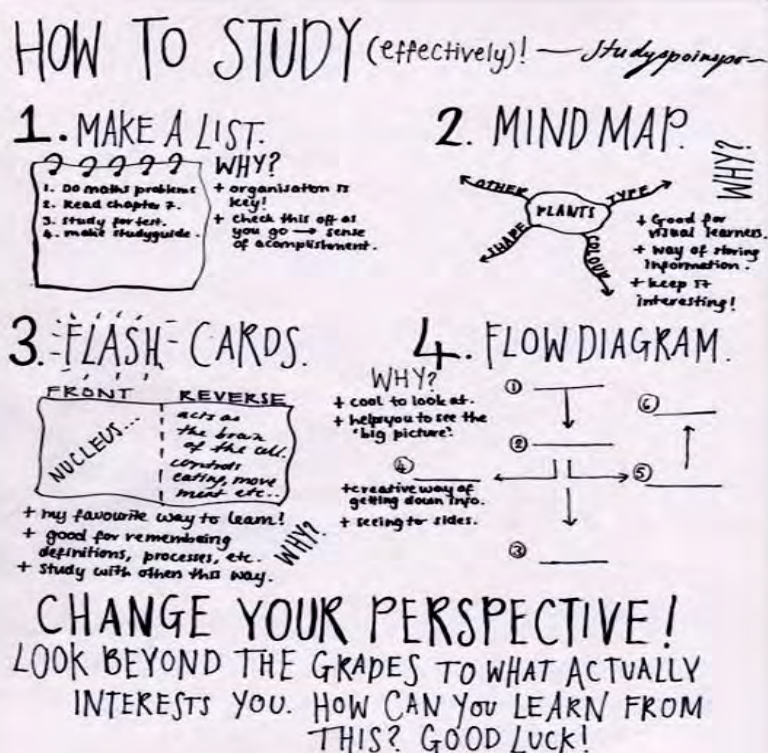 HOW TO STUDY (effectively)! — studyspoinspo
1. MAKE A LIST.
1. Do maths problems
2. Read chapter 7.
3. Study for test.
4. make studyguide.
WHY?
+ organisation is
key!
+ check this off as
you go → sense
of acomplishment.
2. MIND MAP.
WHY?
PLANTS
OTHER
TYPE
SHAPE
COLOUR
+ Good for
visual learners.
+ way of storing
information.
+ keep it
interesting!
3. FLASH CARDS.
FRONT
REVERSE
NUCLEUS...
acts as
the brain
of the cell.
controls
eating, move
ment etc..
WHY?
+ my favourite way to learn!
+ good for remembeing
definitions, processes, etc.
+ Study with others this way.
4. FLOW DIAGRAM.
WHY?
+ cool to look at.
+ helps you to see the
'big picture'.
+ creative way of
getting down info.
+ seeing to sides.
1
2
3
4
5
6
CHANGE YOUR PERSPECTIVE!
LOOK BEYOND THE GRADES TO WHAT ACTUALLY
INTERESTS YOU. HOW CAN YOU LEARN FROM
THIS? GOOD LUCK!